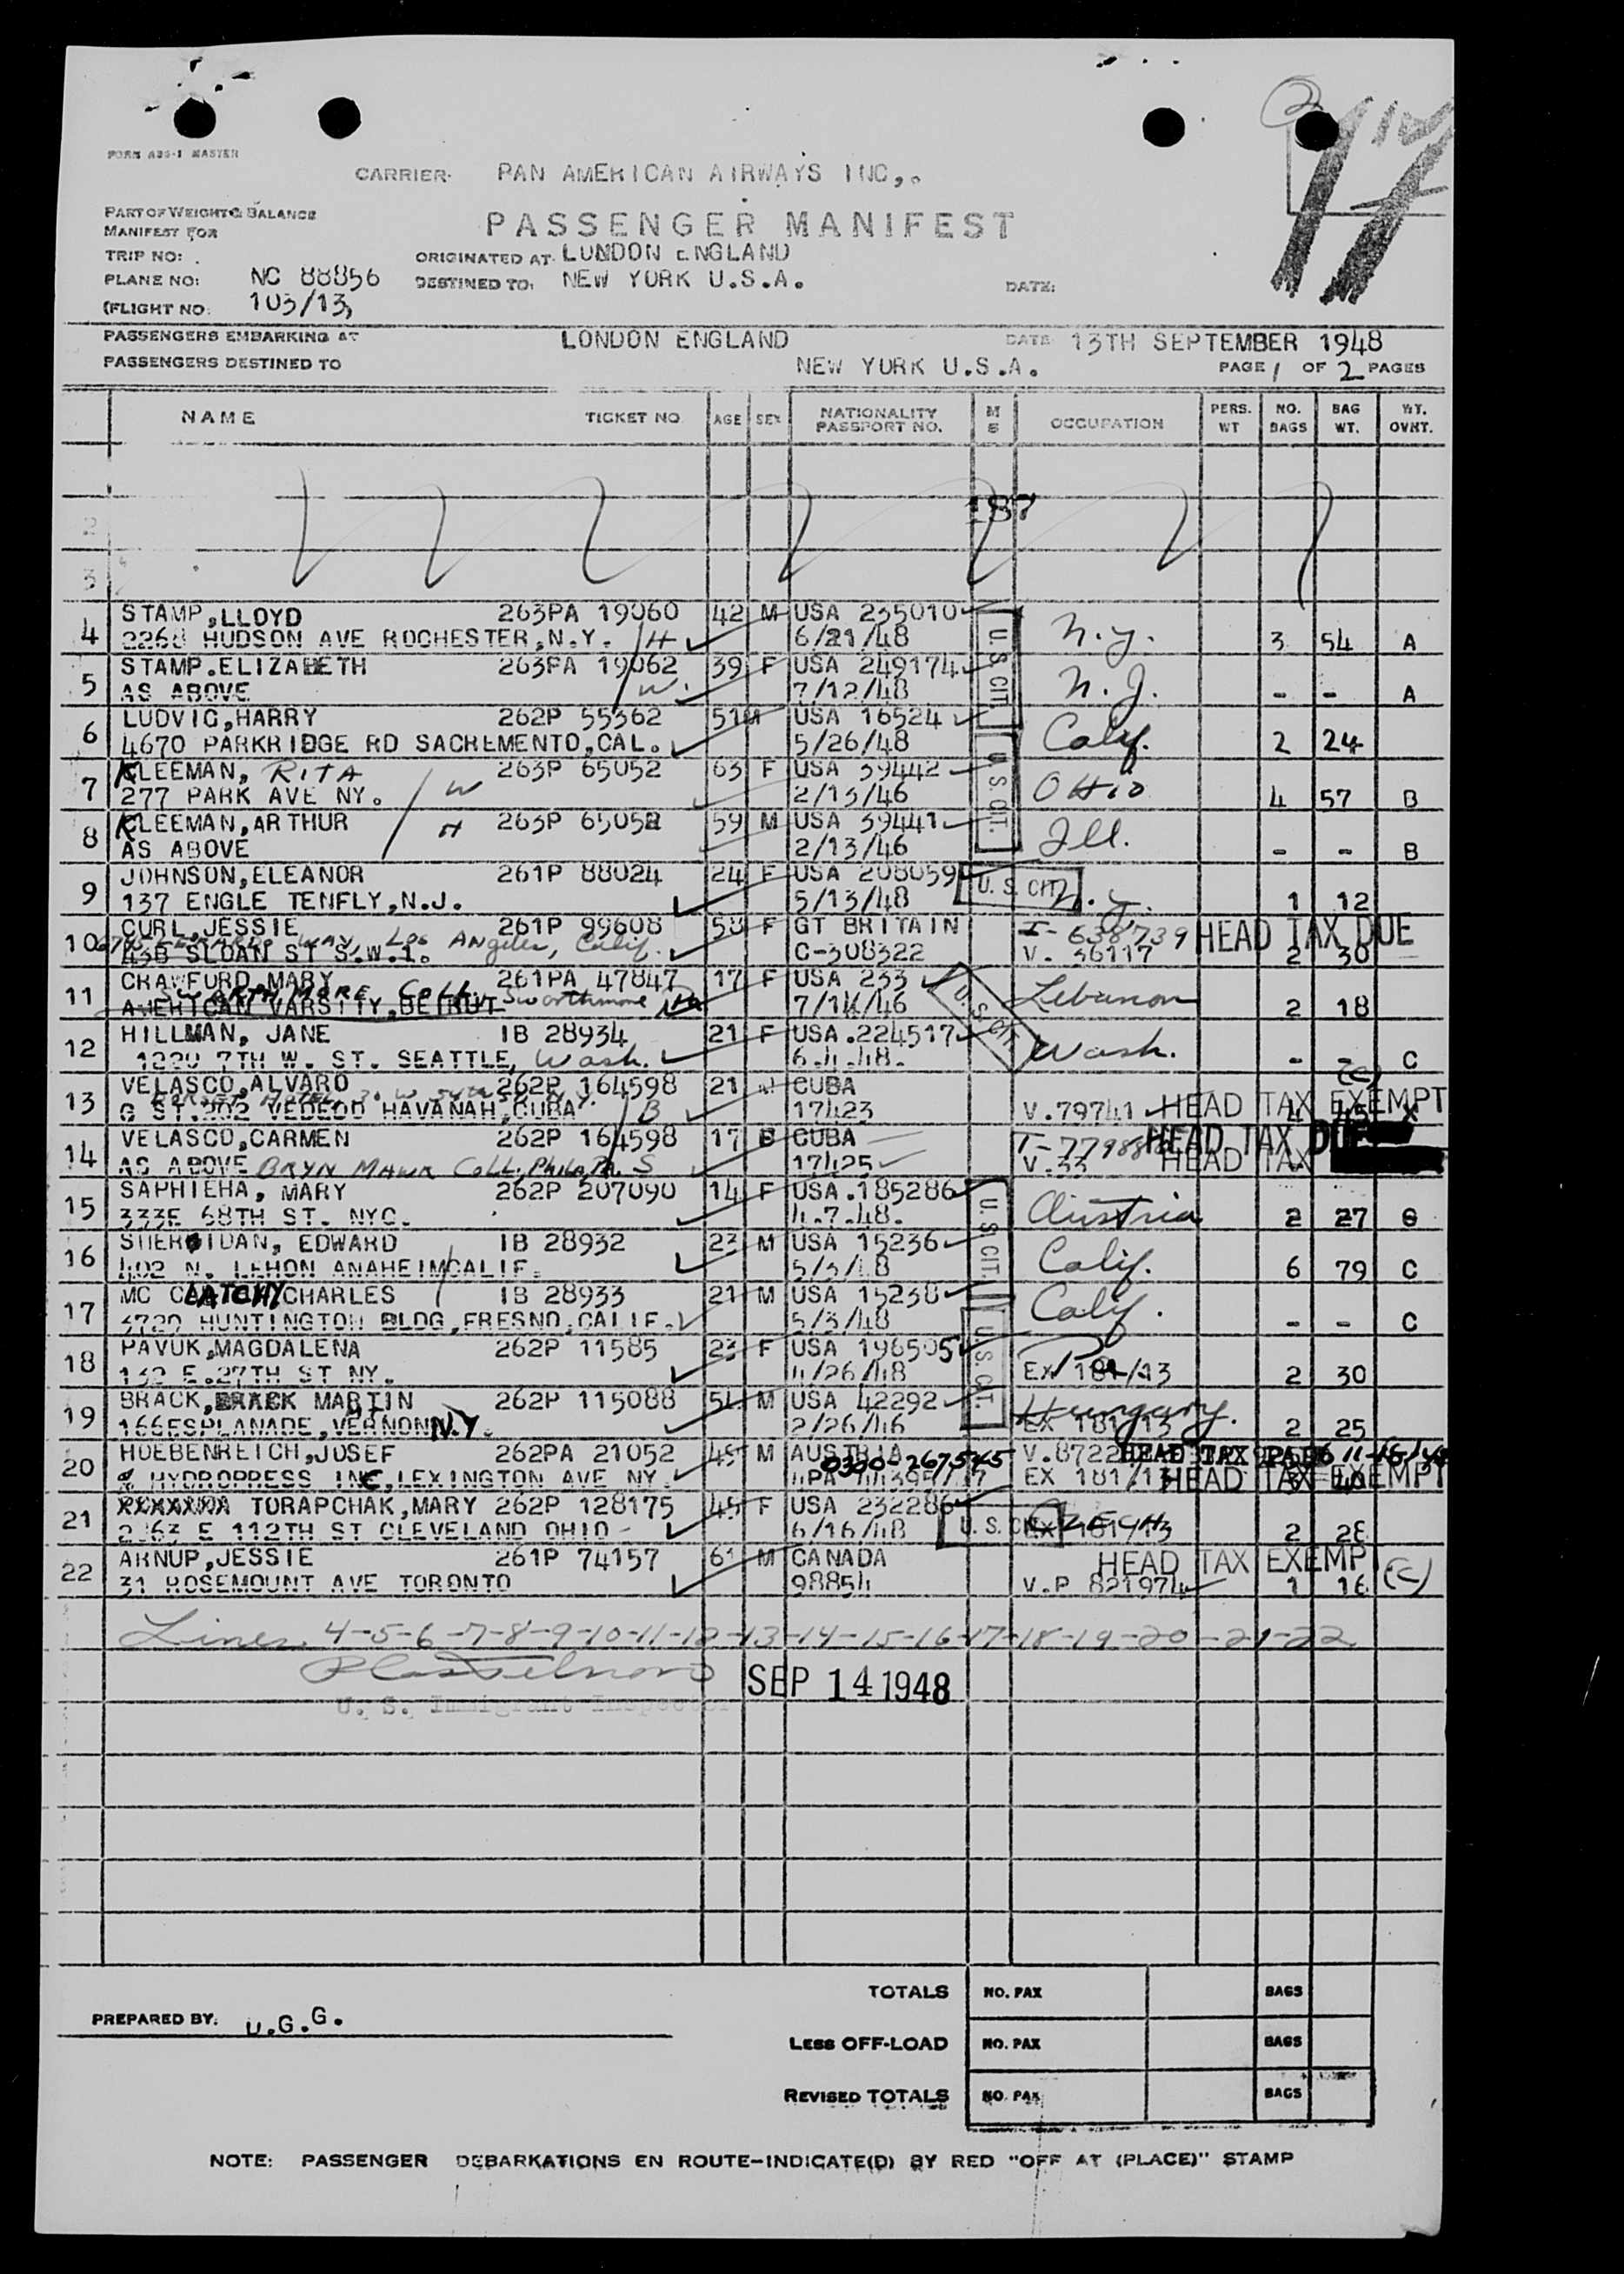 FORM ABS-1 MASTER
CARRIER- PAN AMERICAN AIRWAYS INC,.
PART OF WEIGHT & BALANCE
MANIFEST FOR
PASSENGER MANIFEST
TRIP NO: . ORIGINATED AT- LONDON ENGLAND
PLANE NO: NC 88856 DESTINED TO: NEW YORK U.S.A. DATE:
(FLIGHT NO: 103/13,
PASSENGERS EMBARKING AT LONDON ENGLAND DATE 13TH SEPTEMBER 1948
PASSENGERS DESTINED TO NEW YORK U.S.A. PAGE 1 OF 2 PAGES
NAME TICKET NO AGE SEX NATIONALITY PASSPORT NO. M S OCCUPATION PERS. WT NO. BAGS BAG WT. WT. OVHT.
187
2
3
4 STAMP,LLOYD 263PA 19060 42 M USA 235010 N.Y.
2268 HUDSON AVE ROCHESTER,N.Y. H 6/21/48 3 54 A
U.S CIT.
5 STAMP.ELIZABETH 263PA 19062 39 F USA 249174 N.J.
AS ABOVE W. 7/12/48 - - A
6 LUDVIG,HARRY 262P 55362 51M USA 16524 Calif.
4670 PARKRIDGE RD SACREMENTO,CAL. 5/26/48 2 24
7 KLEEMAN, RITA 263P 65052 63 F USA 39442 OHio
277 PARK AVE NY. W 2/13/46 4 57 B
U.S.CIT.
8 KLEEMAN,ARTHUR H 263P 65052 59 M USA 39441 Ill.
AS ABOVE 2/13/46 - - B
9 JOHNSON,ELEANOR 261P 88024 24 F USA 208059 U.S.CIT N.Y.
137 ENGLE TENFLY,N.J. 5/13/48 1 12
10 CURL,JESSIE 261P 99608 58 F GT BRITAIN I-638739 HEAD TAX DUE
Way, Los Angeles, Calif.
43B SLOAN ST S.W.1. C-308322 V. 36117 2 30
11 CRAWFURD,MARY 261PA 47847 17 F USA 233 Lebanon
SWARTHMORE COLL. Swarthmore Pa
AMERICAN VARSITY,BEIRUT 7/14/46 2 18
U.S.CIT
12 HILLMAN, JANE IB 28934 21 F USA.224517 Wash.
1220 7TH W. ST. SEATTLE, Wash. 6.4.48. - - C
13 VELASCO,ALVARO 262P 164598 21 M CUBA (C)
G ST.202 VEDEDO HAVANAH,CUBA B 17423 V.79741 HEAD TAX EXEMPT
14 VELASCO,CARMEN 262P 164598 17 CUBA HEAD TAX DUE
AS ABOVE BRYN MAWR COLL, PHILA, PA. S 17425 V.33 HEAD TAX
15 SAPHIEHA, MARY 262P 207090 14 F USA.185286 Austria
333E 68TH ST. NYC. 4.7.48. 2 27
U.S.CIT.
16 SHERIDAN, EDWARD IB 28932 23 M USA 15236 Calif.
402 N. LEHON ANAHEIM CALIF. 5/3/48 6 79 C
17 MC CLATCHY CHARLES IB 28933 21 M USA 15238 Calif.
3720 HUNTINGTON BLDG,FRESNO,CALIF. 5/3/48 - - C
18 PAVUK,MAGDALENA 262P 11585 23 F USA 196505 Pa
132 E.27TH ST NY. 4/26/48 EX 181/13 2 30
U.S.CIT.
19 BRACK, MARTIN 262P 115088 54 M USA 42292 Hungary.
166 ESPLANADE,VERNON N.Y. 2/26/46 EX 181/13 2 25
20 HUEBENREICH,JOSEF 262PA 21052 49 M AUSTRIA HEAD TAX PAID
0300-267545
% HYDROPRESS INC,LEXINGTON AVE NY. EX 181/13 HEAD TAX EXEMPT
21 XXXXXXX TORAPCHAK,MARY 262P 128175 49 F USA 232286 CZECH
2163 E 112TH ST CLEVELAND OHIO 6/16/48 U.S.CIT EX 181/13 2 28
22 ARNUP,JESSIE 261P 74157 61 M CANADA HEAD TAX EXEMP (C)
31 ROSEMOUNT AVE TORONTO 98854 V.P 821974 1 16
Lines 4-5-6-7-8-9-10-11-12-13-14-15-16-17-18-19-20-21-22
SEP 14 1948
U. S. Immigrant Inspector
TOTALS NO. PAX BAGS
PREPARED BY: U.G.G.
LESS OFF-LOAD NO. PAX BAGS
REVISED TOTALS NO. PAX BAGS
NOTE: PASSENGER DEBARKATIONS EN ROUTE-INDICATE(D) BY RED "OFF AT (PLACE)" STAMP